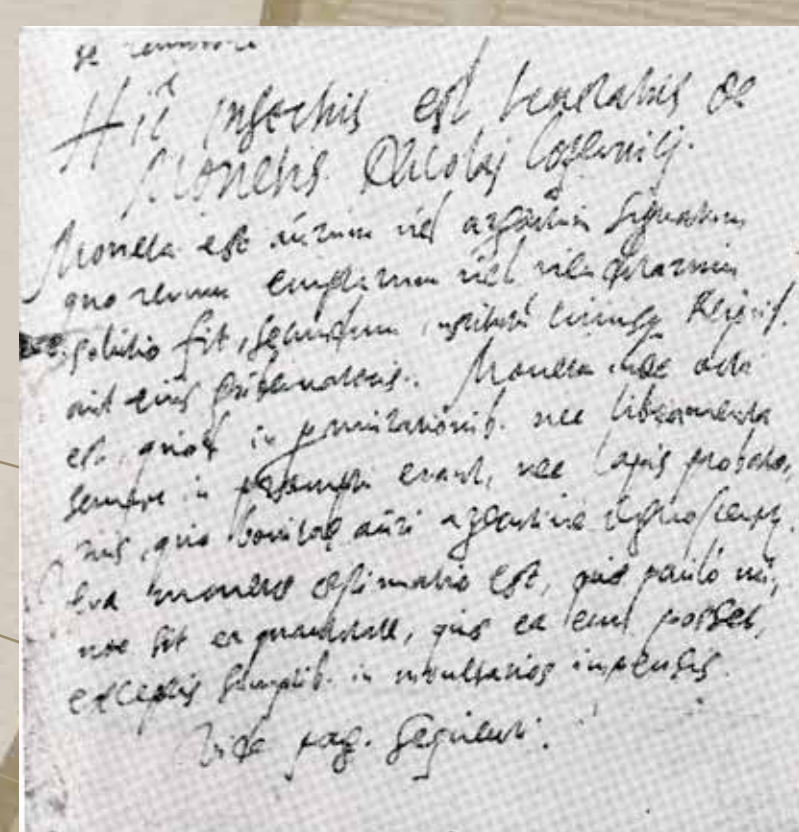 Hic insertus est tractatus de
Monetis Nicolaj Copernicj.
Moneta est aurum vel argentum signatum
quo rerum emptarum vel
solutio fit, secundum institutū cuiusq Reip.
aut eius gubernatoris. Moneta inde orta
est, quod in p̱mutationib. nec libramenta
semper in promptu erant, nec lapis probato,
rius, quo bonitas auri argentive
era monetę estimatio est, que paulo mi,
nor sit ea quantitate, que ea emi posset,
exceptis sumptib. in monetarios impensis.
Vide pag. sequent.